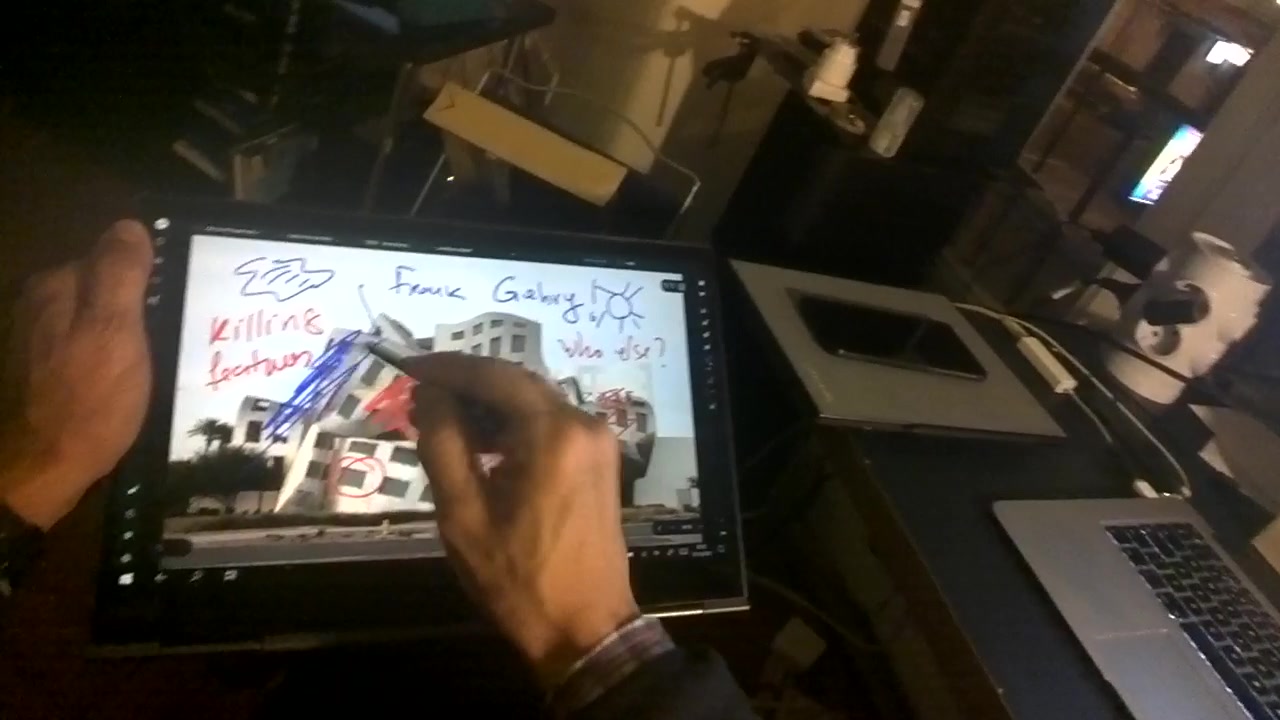 Frank Gehry!
Killing
features
Who else?